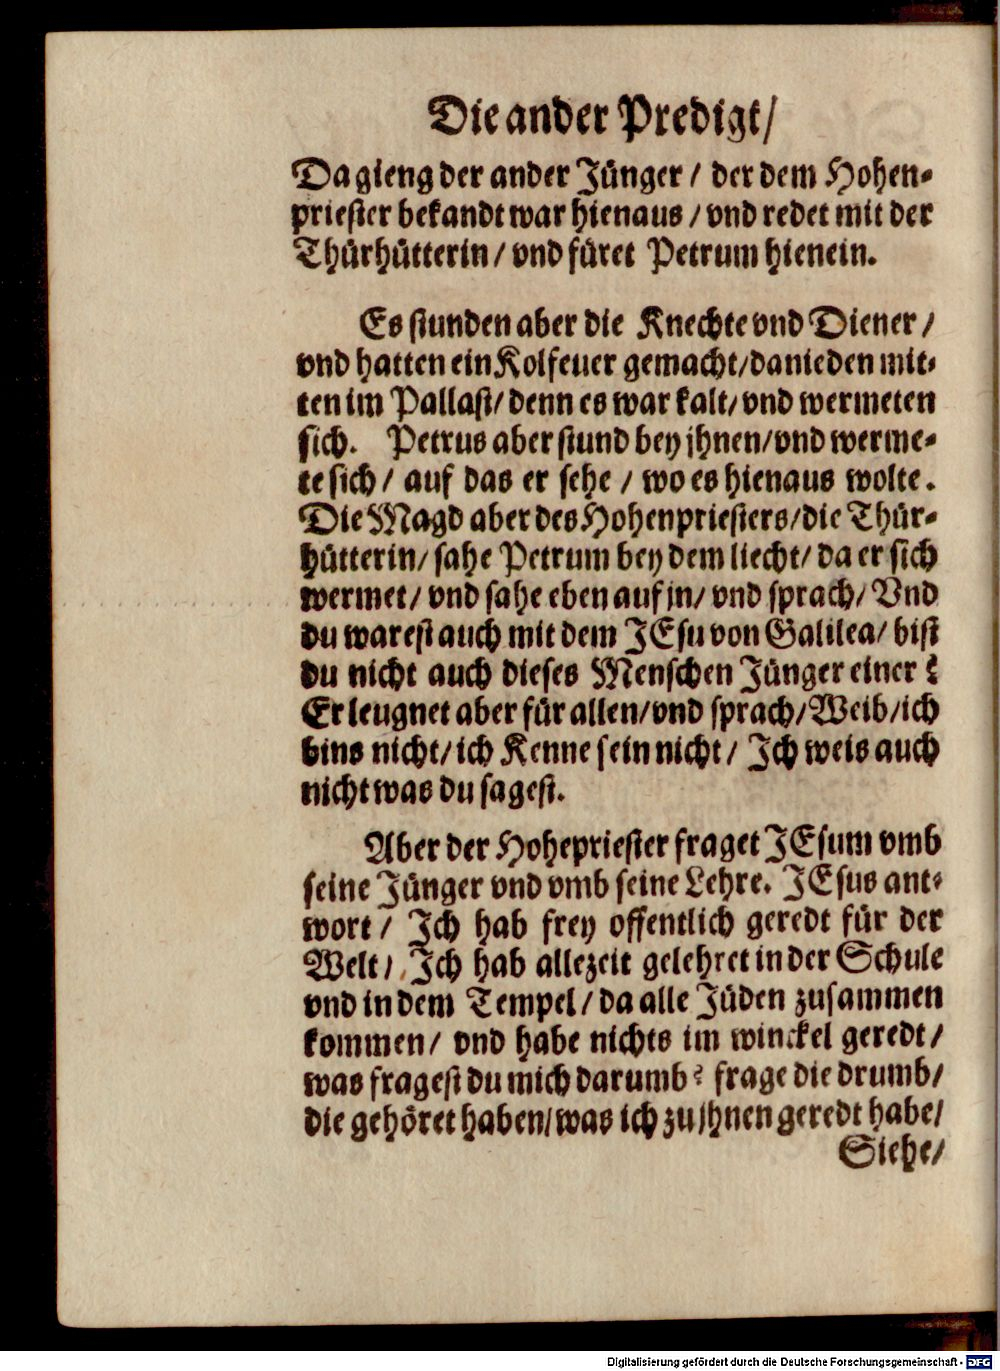 Die ander Predigt/
Da gieng der ander Jünger / der dem Hohen-
priester bekandt war hienaus / vnd redet mit der
Thürhütterin / vnd füret Petrum hienein.
Es stunden aber die Knechte vnd Diener /
vnd hatten ein Kolfeuer gemacht/danieden mit-
ten im Pallast/ denn es war kalt/ vnd wermeten
sich. Petrus aber stund bey jhnen/vnd werme-
te sich / auf das er sehe / wo es hienaus wolte.
Die Magd aber des Hohenpriesters/die Thür-
hütterin/ sahe Petrum bey dem liecht/ da er sich
wermet/ vnd sahe eben auf jn/ vnd sprach/ Vnd
du warest auch mit dem JEsu von Galilea/ bist
du nicht auch dieses Menschen Jünger einer?
Er leugnet aber für allen/vnd sprach/Weib/ich
bins nicht/ich Kenne sein nicht/ Ich weis auch
nicht was du sagest.
Aber der Hohepriester fraget JEsum vmb
seine Jünger vnd vmb seine Lehre. JEsus ant-
wort / Ich hab frey offentlich geredt für der
Welt/ Ich hab allezeit gelehret in der Schule
vnd in dem Tempel/ da alle Jüden zusammen
kommen/ vnd habe nichts im winckel geredt/
was fragest du mich darumb? frage die drumb/
die gehöret haben/was ich zu jhnen geredt habe/
Siehe/
Digitalisierung gefördert durch die Deutsche Forschungsgemeinschaft - DFG